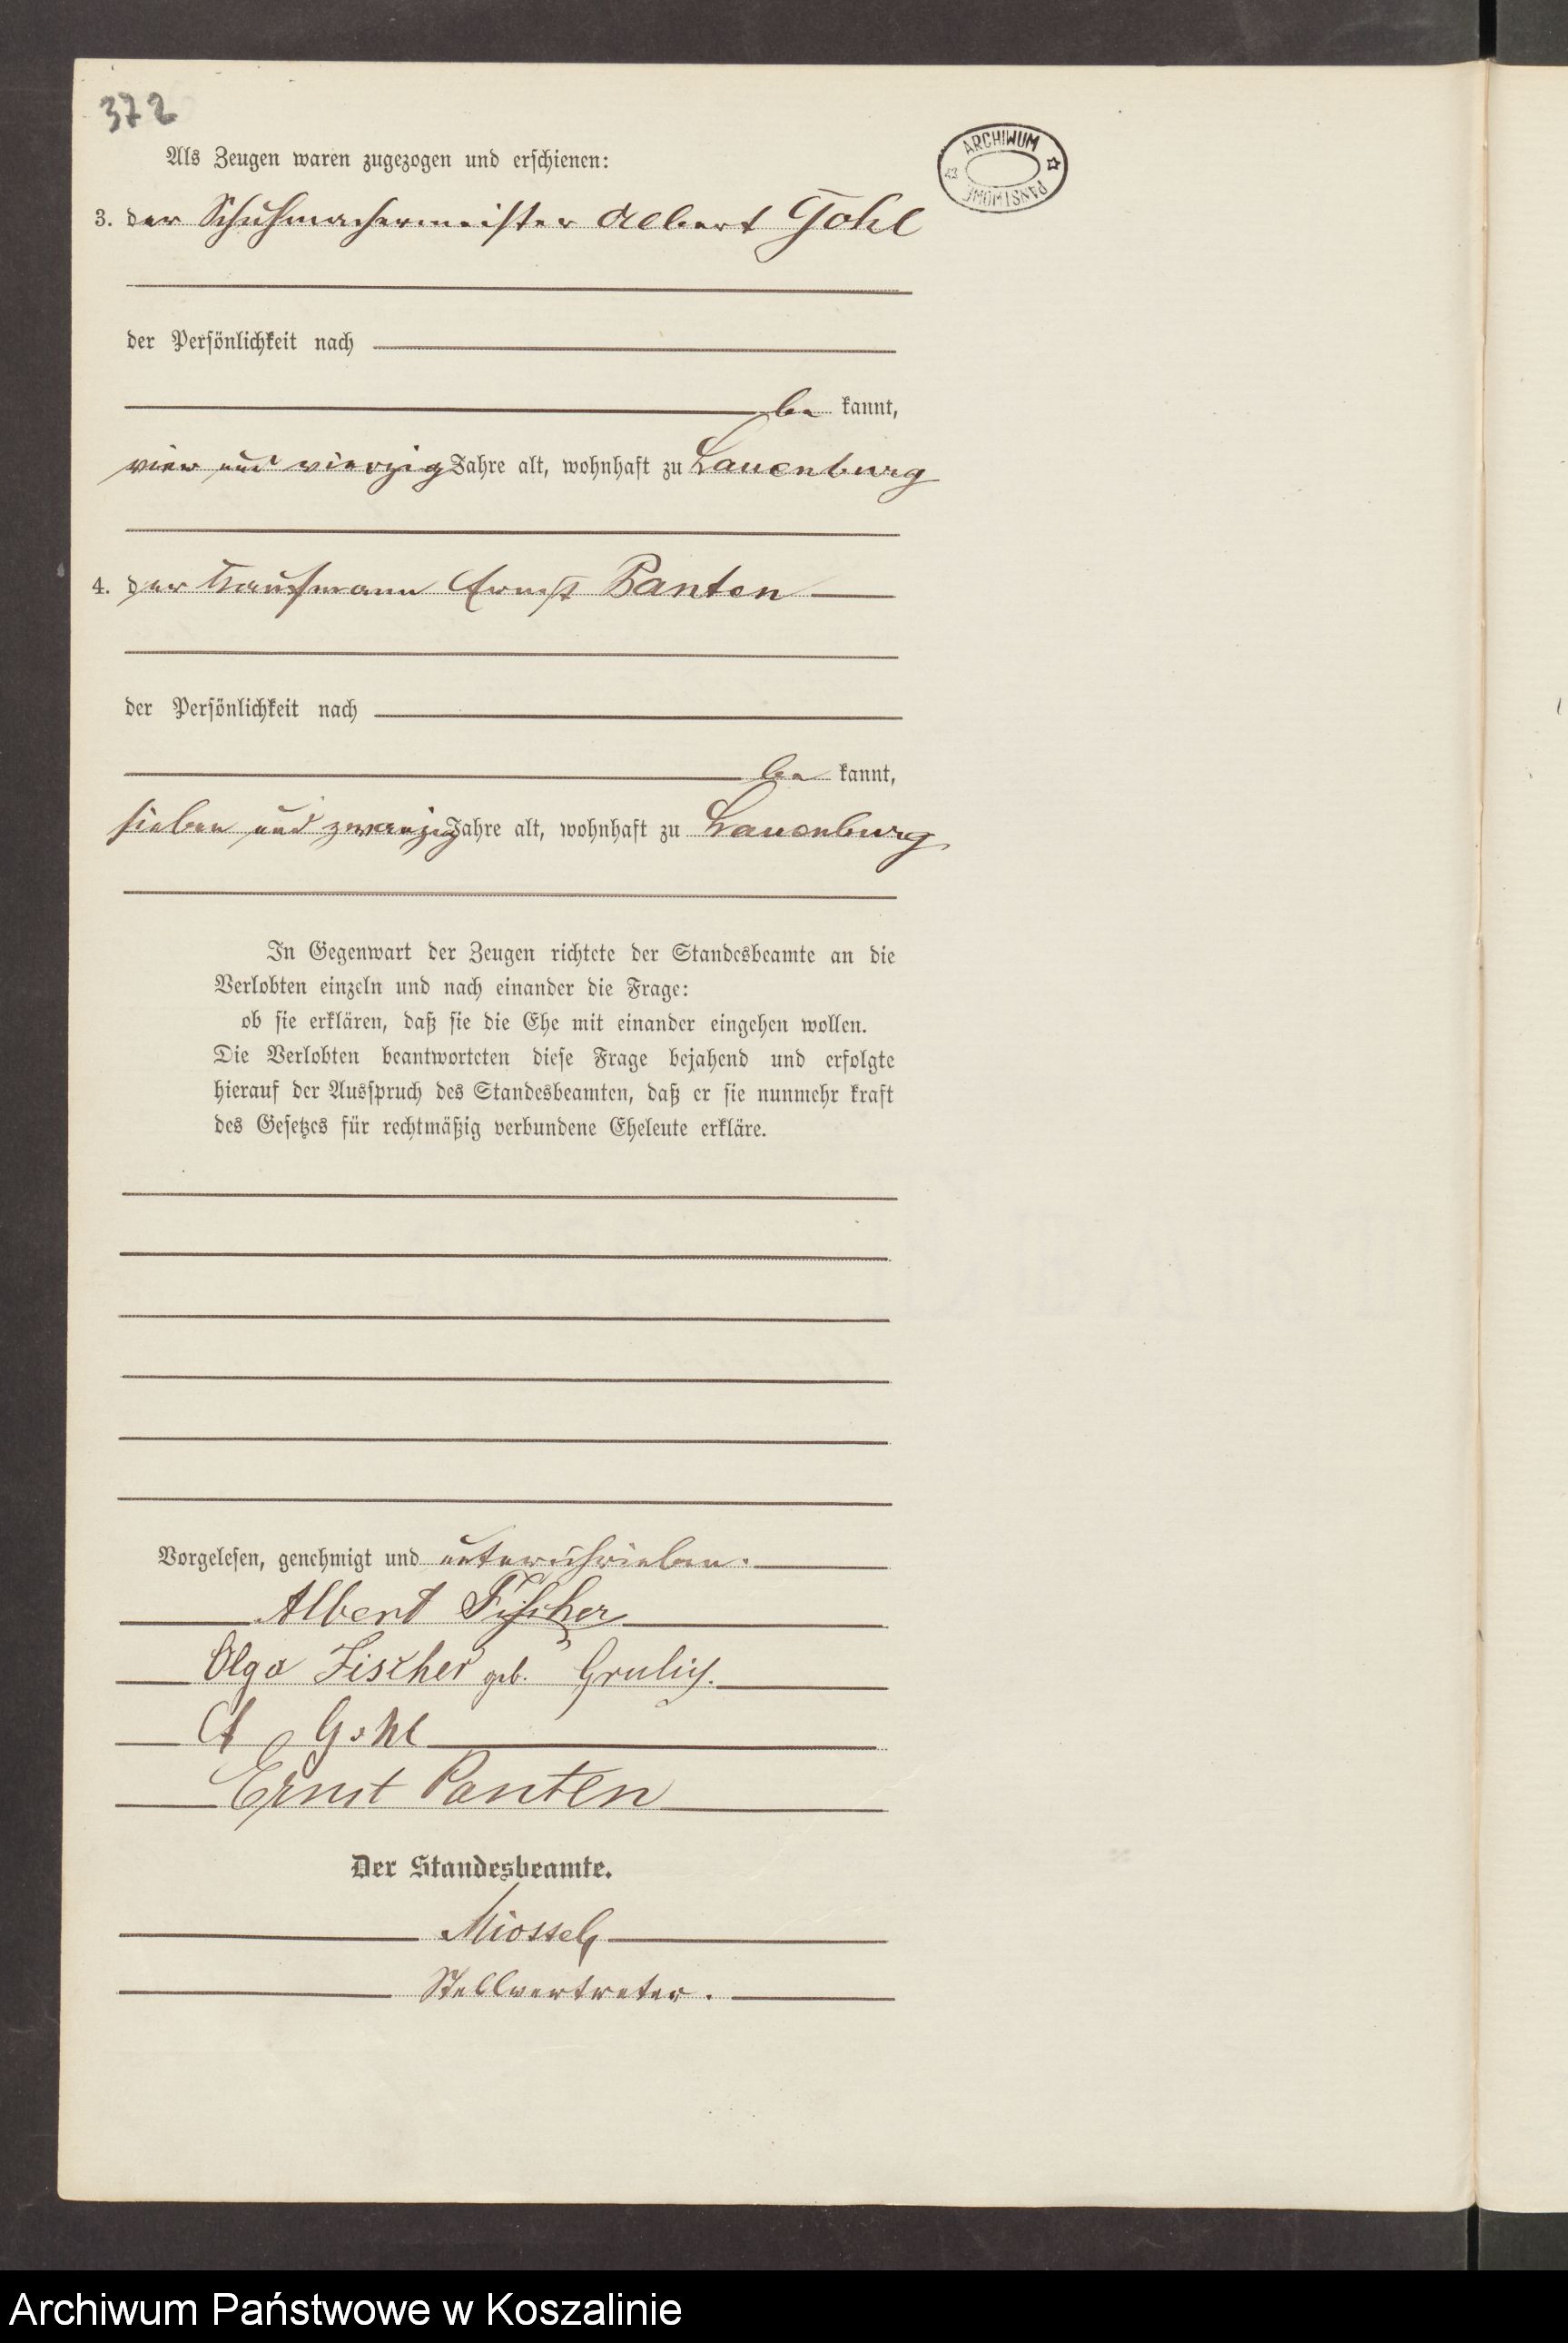 372
Als Zeugen waren zugezogen und erschienen:
ARCHIWUM
PAŃSTWOWE
3. der Schuhmachermeister Albert Gohl
der Persönlichkeit nach
be kannt,
vier und vierzig Jahre alt, wohnhaft zu Lauenburg
4. der Kaufmann Ernst Panten
der Persönlichkeit nach
be kannt,
sieben und zwanzig Jahre alt, wohnhaft zu Lauenburg
In Gegenwart der Zeugen richtete der Standesbeamte an die
Verlobten einzeln und nach einander die Frage:
ob sie erklären, daß sie die Ehe mit einander eingehen wollen.
Die Verlobten beantworteten diese Frage bejahend und erfolgte
hierauf der Ausspruch des Standesbeamten, daß er sie nunmehr kraft
des Gesetzes für rechtmäßig verbundene Eheleute erkläre.
Vorgelesen, genehmigt und unterschrieben.
Albert Fischer
Olga Fischer geb. Grulich.
A Gohl
Ernst Panten
Der Standesbeamte.
Stellvertreter.
Archiwum Państwowe w Koszalinie